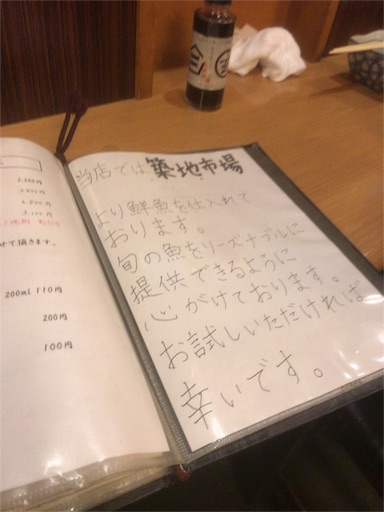 当店では築地市場
より鮮魚を仕入れて
おります。
旬の魚をリーズナブルに
提供できるように
心がけております。
お試しいただければ
幸いです。
せて頂きます。
200ml 110円
200円
100円